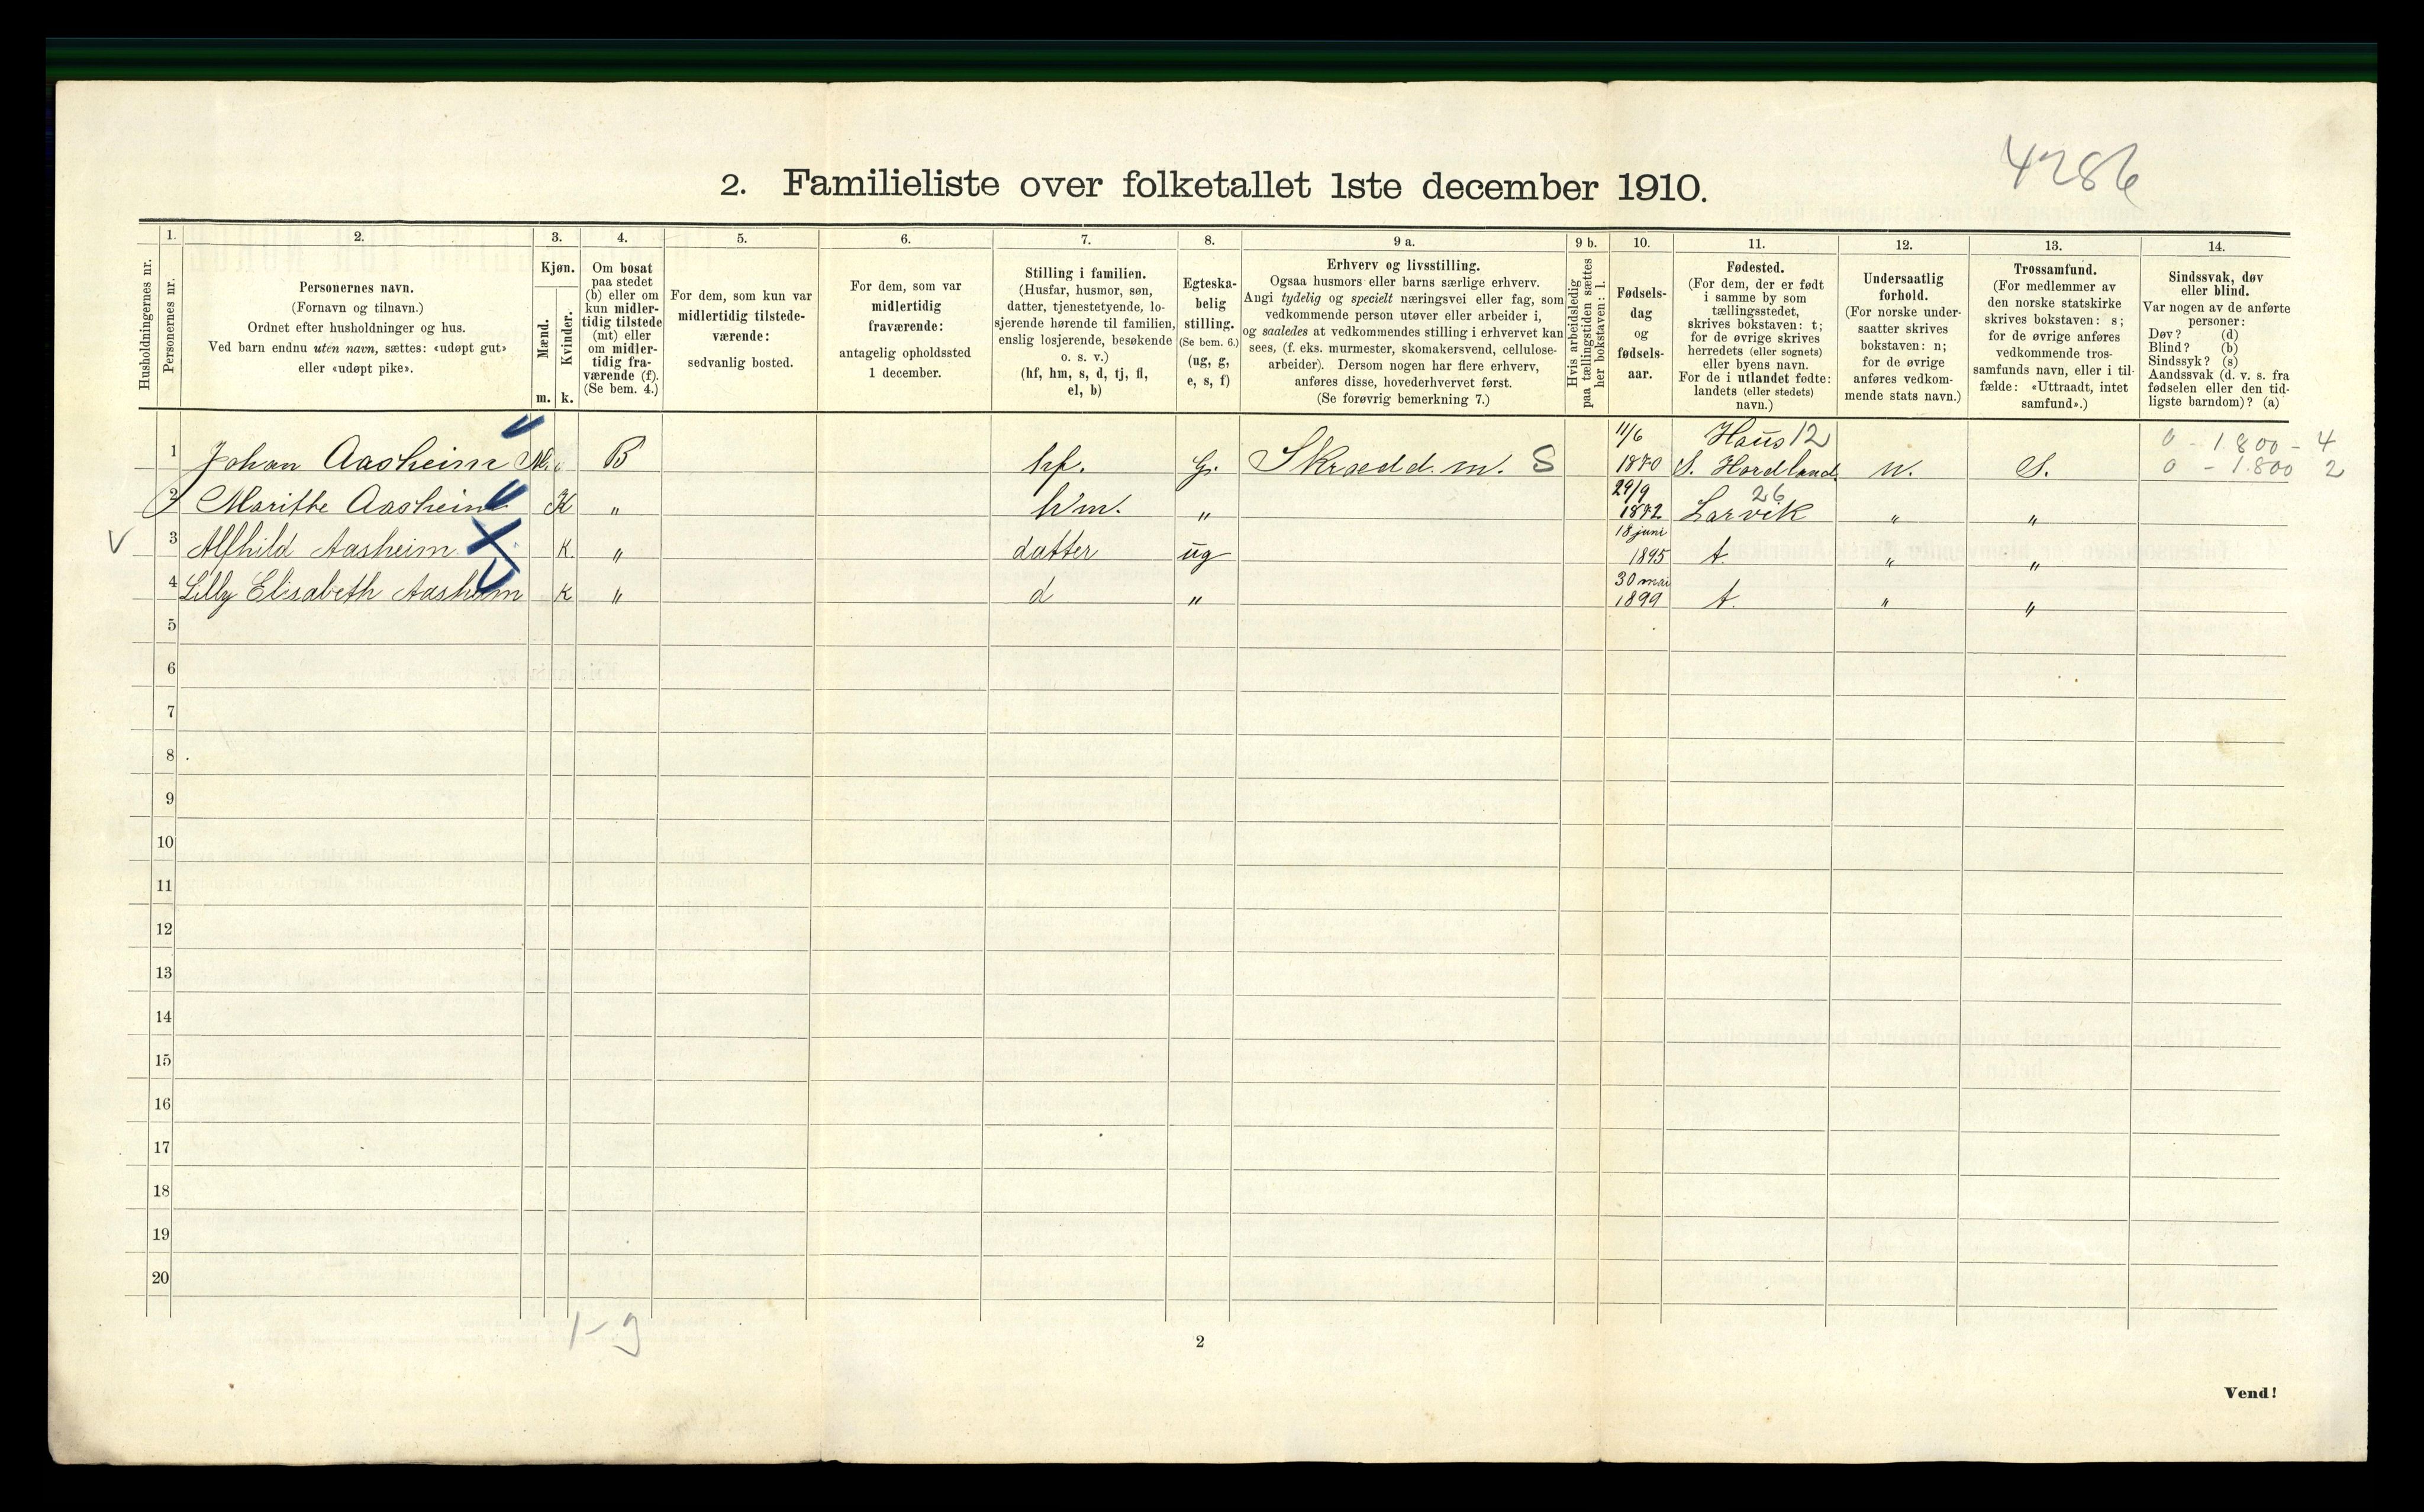 4286
2. Familieliste over folketallet 1ste december 1910.
Husholdningernes nr.
1.
Personernes nr.
2.
Personernes navn.
(Fornavn og tilnavn.)
Ordnet efter husholdninger og hus.
Ved barn endnu uten navn, sættes: «udøpt gut»
eller «udøpt pike».
3.
Kjøn.
Mænd.
m.
Kvinder.
k.
4.
Om bosat
paa stedet
(b) eller om
kun midler-
tidig tilstede
(mt) eller
om midler-
tidig fra-
værende (f).
(Se bem. 4.)
5.
For dem, som kun var
midlertidig tilstede-
værende:
sedvanlig bosted.
6.
For dem, som var
midlertidig
fraværende:
antagelig opholdssted
1 december.
7.
Stilling i familien.
(Husfar, husmor, søn,
datter, tjenestetyende, lo-
sjerende hørende til familien,
enslig losjerende, besøkende
o. s. v.)
(hf, hm, s, d, tj, fl,
el, b)
8.
Egteska-
belig
stilling.
(Se bem. 6.)
(ug, g,
e, s, f)
9 a.
Erhverv og livsstilling.
Ogsaa husmors eller barns særlige erhverv.
Angi tydelig og specielt næringsvei eller fag, som
vedkommende person utøver eller arbeider i,
og saaledes at vedkommendes stilling i erhvervet kan
sees, (f. eks. murmester, skomakersvend, cellulose-
arbeider). Dersom nogen har flere erhverv,
anføres disse, hovederhvervet først.
(Se forøvrig bemerkning 7.)
9 b.
Hvis arbeidsledig
paa tællingstiden sættes
her bokstaven: l.
10.
Fødsels-
dag
og
fødsels-
aar.
11.
Fødested.
(For dem, der er født
i samme by som
tællingsstedet,
skrives bokstaven: t;
for de øvrige skrives
herredets (eller sognets)
eller byens navn.
For de i utlandet fødte:
landets (eller stedets)
navn.)
12.
Undersaatlig
forhold.
(For norske under-
saatter skrives
bokstaven: n;
for de øvrige
anføres vedkom-
mende stats navn.)
13.
Trossamfund.
(For medlemmer av
den norske statskirke
skrives bokstaven: s;
for de øvrige anføres
vedkommende tros-
samfunds navn, eller i til-
fælde: «Uttraadt, intet
samfund».)
14.
Sindssvak, døv
eller blind.
Var nogen av de anførte
personer:
Døv? (d)
Blind? (b)
Sindssyk? (s)
Aandssvak (d. v. s. fra
fødselen eller den tid-
ligste barndom)? (a)
11/6 Haus 12 0 - 1800 - 4
1 Johan Aasheim M. B hf. G. Skrædd. m. S 1870 S. Hordland. N. S. 0 - 1.800 2
29/9 26
2 Marithe Aasheim K " hm. " 1872 Larvik " "
18 juni
V 3 Alfhild Aasheim K. " datter ug 1895 t. " "
30 mai
4 Lilly Elisabeth Aasheim K " d " 1899 t. " "
5
6
7
8
9
10
11
12
13
14
15
16
17
18
19
20
1-9
2
Vend!